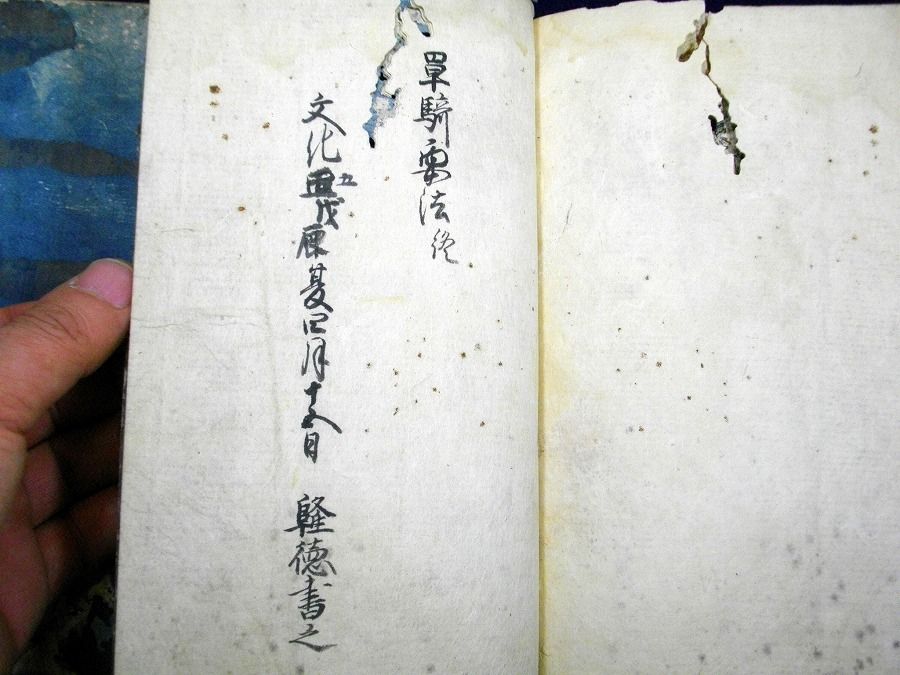 單騎要法終
文化五戊辰夏四月十五日　隆徳書之